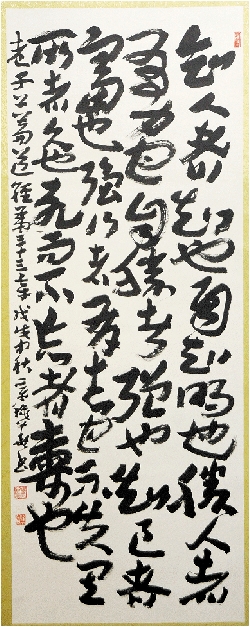 知人者知也自知明也勝人者
有力也自勝者強也知足者
富也強行者有志也不失其
所者久也死而不忘者壽也
老子上篇道經第三十三章戊戌初秋